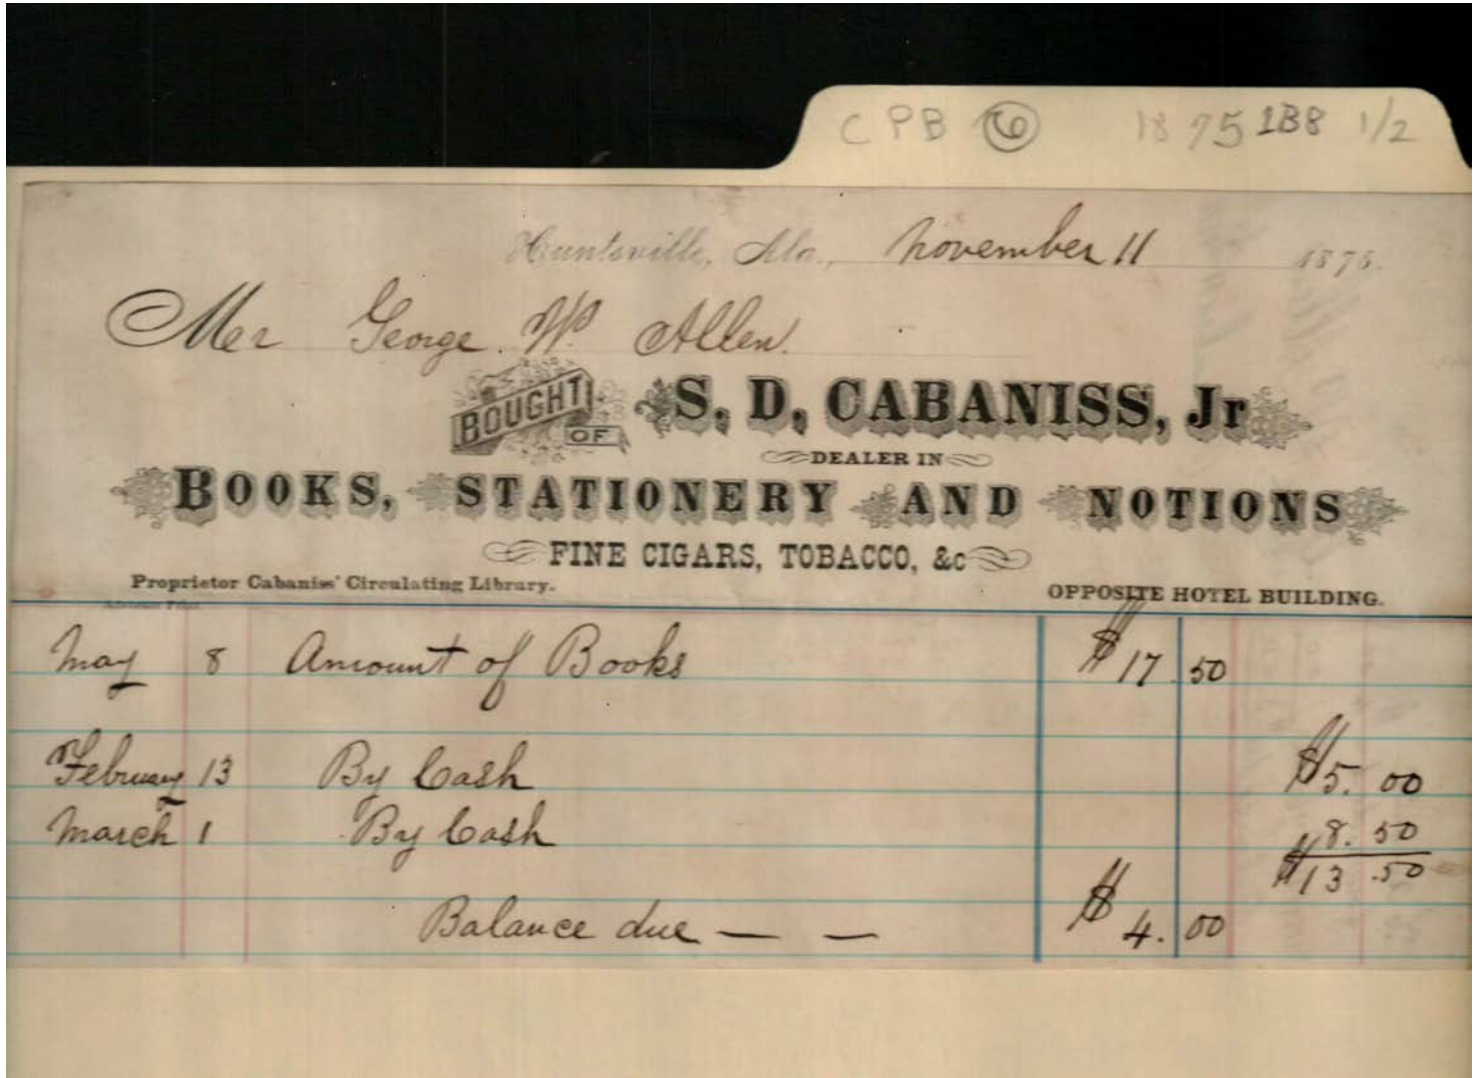 CPB 6 1875 1B8 1/2
Huntsville, Ala., November 11 1875.
Mer George W. Allen.
BOUGHT OF S. D. CABANISS, Jr
DEALER IN
BOOKS, STATIONERY AND NOTIONS
FINE CIGARS, TOBACCO, &c
Proprietor Cabaniss' Circulating Library. OPPOSITE HOTEL BUILDING.
May 8 Amount of Books $17.50
February 13 By Cash $5.00
March 1 By Cash 8.50
$13.50
Balance due — — $4.00